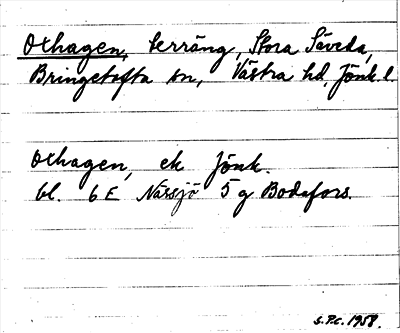 Oxhagen, terräng, Stora Säveda,
Bringetofta sn, Västra hd, Jönk l.
Oxhagen, ek Jönk.
bl. 6 E Nässjö 5 g Bodafors.
S.P.C. 1958.